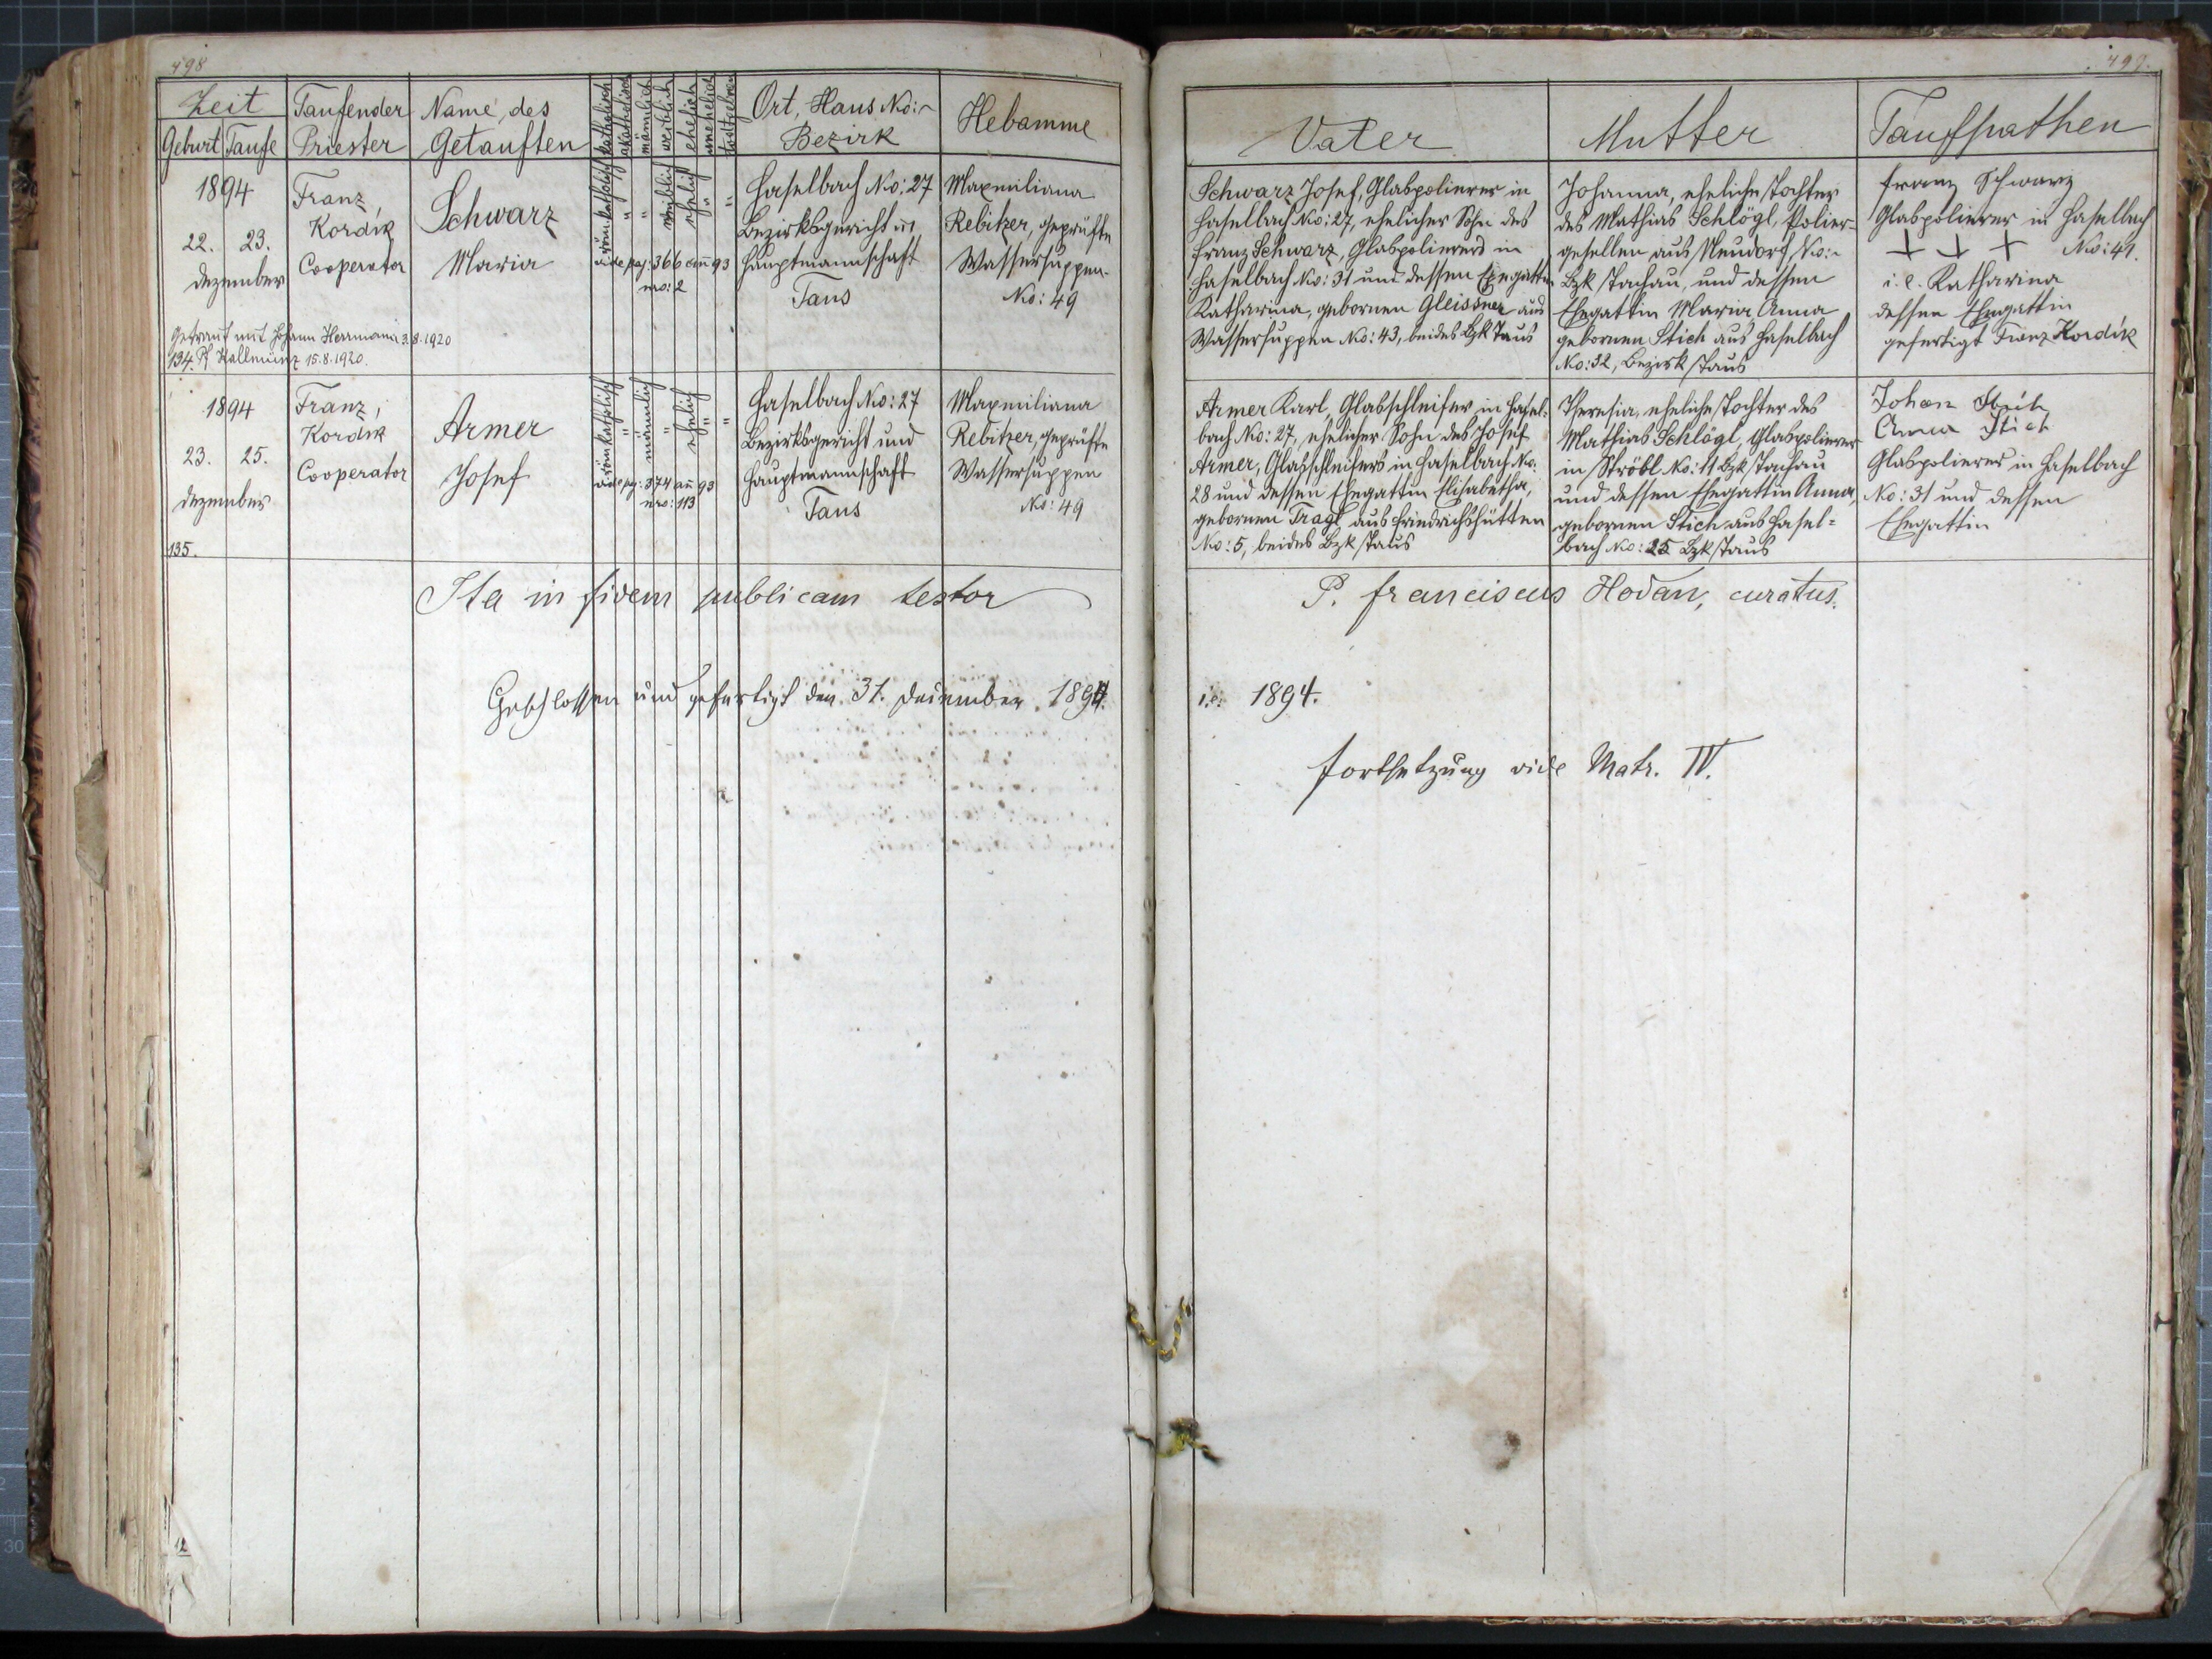 498
Zeit
Geburt Taufe
Taufender
Priester
Name des
Getauften
katholisch
akatholisch
männlich
weiblich
ehelich
unehelich
todtgeboren
Ort, Haus No:
Bezirk
Hebamme
1894
22. 23.
Dezember
Franz
Kordík
Cooperator
Schwarz
Maria
römkatholisch
"
"
weiblich
ehelich
"
"
vide pag: 366 añ 93
nro: 2
Haselbach No: 27
Bezirksgericht u
Hauptmannschaft
Taus
Maxmiliana
Rebitzer, geprüfte
Wassersuppen-
No: 49
Getraut mit Johann Herrmann 3.8.1920
134. Pf Kallmünz 15.8.1920.
1894
23. 25.
Dezember
135.
Franz
Kordík
Cooperator
Armer
Josef
römkatholisch
"
männlich
"
ehelich
"
"
vide pg: 374 añ 93
nro: 113
Haselbach No: 27
Bezirksgericht und
Hauptmannschaft
Taus
Maxmiliana
Rebitzer, geprüfte
Wassersuppen
No: 49
Ita in fidem publicam testor
Geschlossen und gefertigt den 31. Dezember 1894.
12
499.
Vater
Mutter
Taufpathen
Schwarz Josef, Glaspolierer in
Haselbach No: 27, ehelicher Sohn des
Franz Schwarz, Glaspolierers in
Haselbach No: 31 und dessen Ehegattin
Katharina, gebornen Gleissner aus
Wassersuppen No: 43, beides Bzk Taus
Johanna, eheliche Tochter
des Mathias Schlögl, Polier-
gesellen aus Neudorf No:-
Bzk Tachau, und dessen
Ehegattin Maria Anna
gebornen Stich aus Haselbach
No: 32, Bezirk Taus
Franz Schwarz
Glaspolierer in Haselbach
+ + + No: 41.
i. e. Katharina
dessen Ehegattin
gefertigt Franz Kordík
Armer Karl, Glasschleifer in Hasel-
bach No: 27, ehelicher Sohn des Josef
Armer, Glasschleifers in Haselbach No:
28 und dessen Ehegattin Elisabetha,
gebornen Tragl aus Friedrichshütten
No: 5, beides Bzk Taus
Theresia, eheliche Tochter des
Mathias Schlögl, Glaspolierer
in Ströbl No: 11 Bzk Tachau
und dessen Ehegattin Anna,
gebornen Stich aus Hasel=
bach No: 25 Bzk Taus
Johan Stich
Anna Stich
Glaspolierer in Haselbach
No: 31 und dessen
Ehegattin
P. Franciscus Hodan, curatus.
i.e. 1894.
Fortsetzung vide Matr. IV.